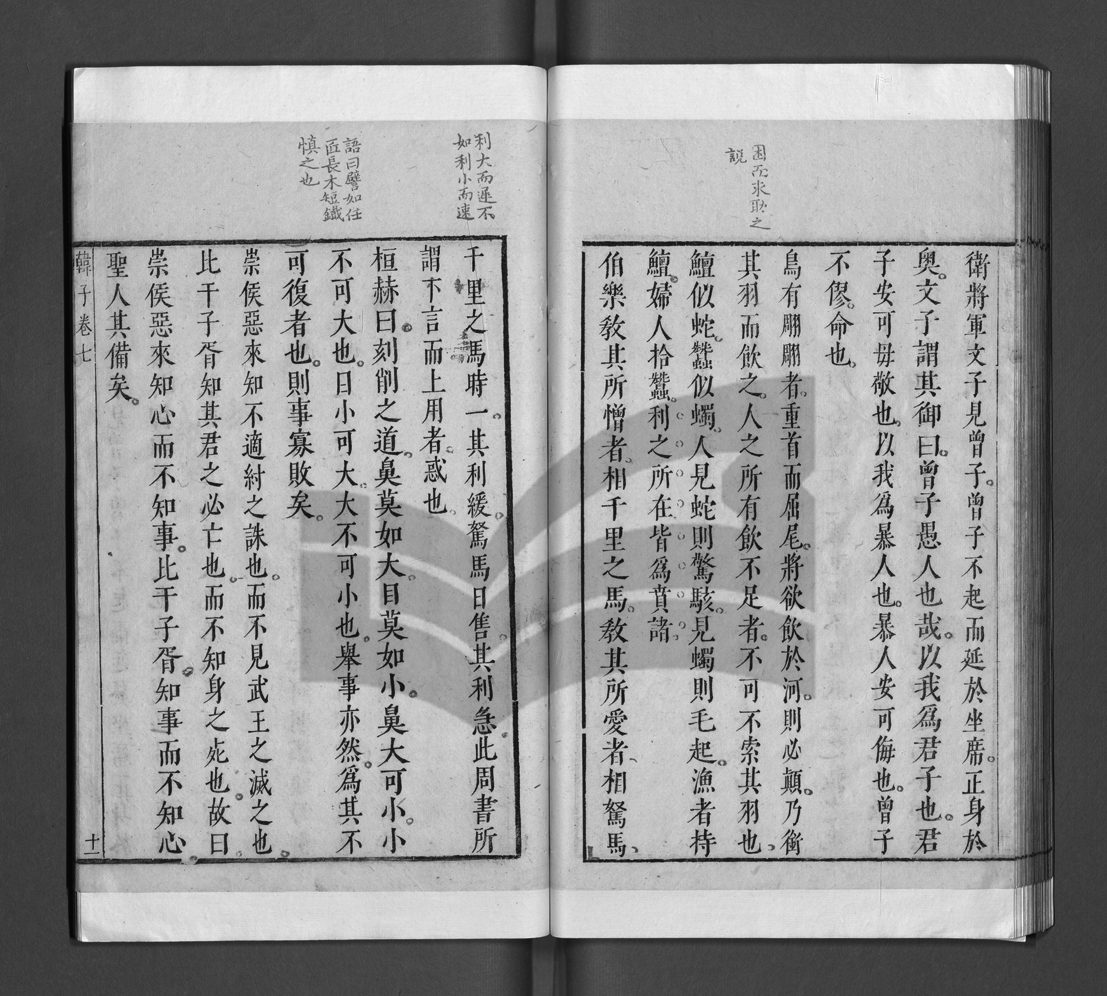 困而求取之
說
衛將軍文子見曾子。曾子不起而延於坐席。正身於
奥。文子謂其御曰。曾子愚人也哉。以我爲君子也。君
子安可毋敬也。以我爲暴人也。暴人安可侮也。曾子
不僇。命也。
鳥有翢翢者。重首而屈尾。將欲飲於河。則必顛。乃銜
其羽而飲之。人之所有飲不足者。不可不索其羽也。
鱣似蛇。蠶似蠋。人見蛇則驚駭。見蠋則毛起。漁者持
鱣。婦人拾蠶。利之所在。皆爲賁諸。
伯樂敎其所憎者。相千里之馬。敎其所愛者。相駑馬。
利大而遲不
如利小而速
語曰譬如任
匠長木短鐵
慎之也
千里之馬時一。其利緩。駑馬日售。其利急。此周書所
謂下言而上用者。惑也。
桓赫曰。刻削之道。鼻莫如大。目莫如小。鼻大可小。小
不可大也。目小可大。大不可小也。舉事亦然。爲其不
可復者也。則事寡敗矣。
崇侯惡來知不適紂之誅也。而不見武王之滅之也。
比干子胥知其君之必亡也。而不知身之死也。故曰。
崇侯惡來知心而不知事。比干子胥知事而不知心。
聖人其備矣。
韓子卷七
十一